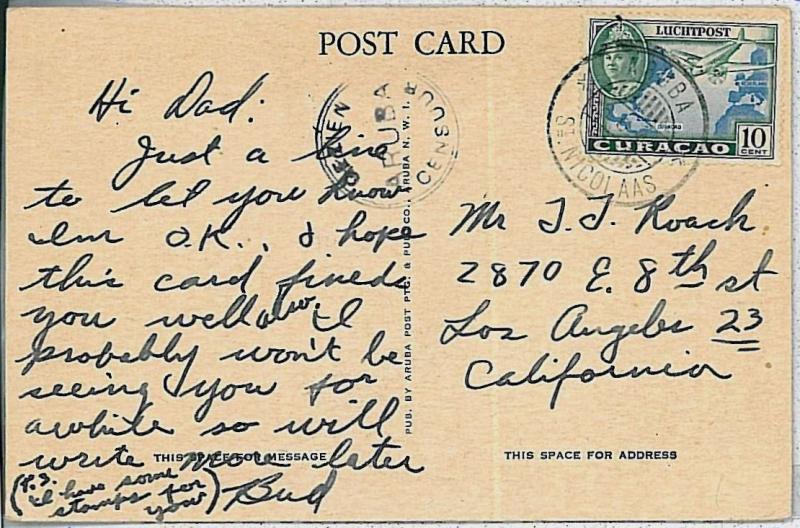 POST CARD
LUCHTPOST
CURAÇAO
10
CENT
ARUBA
ST. NICOLAAS
GEZIEN
ARUBA
CENSOR
Hi Dad:
Just a line
to let you know
I'm O.K., I hope
this card finds
you well
I
probably won't be
seeing you for
awhile so will
write more later
Bud
(P.S.
I have some
stamps for
you)
THIS SPACE FOR MESSAGE
PUB. BY ARUBA POST PTG. & PUB. CO., ARUBA N. W. I.
Mr J. J. Roach
2870 E. 8th st
Los Angeles 23
California
THIS SPACE FOR ADDRESS